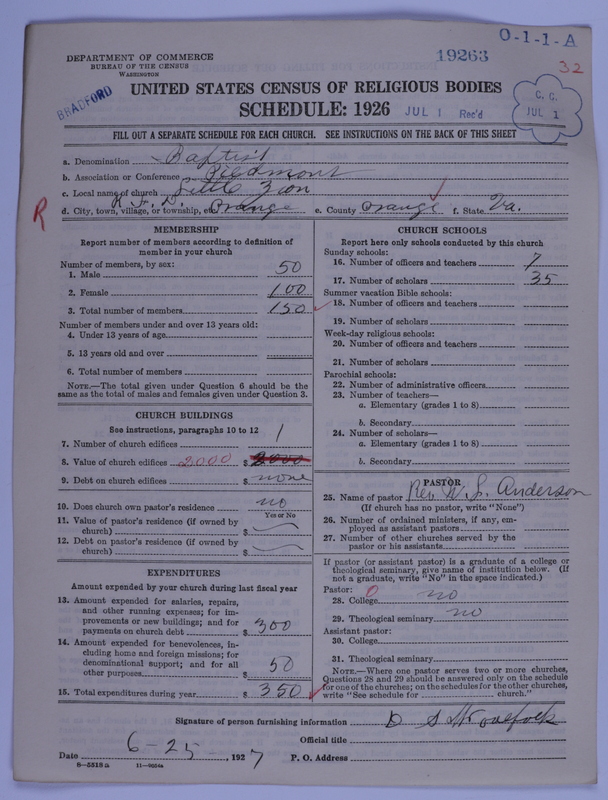 O-1-1-A
19263
32
DEPARTMENT OF COMMERCE
BUREAU OF THE CENSUS
WASHINGTON
BRADFORD
UNITED STATES CENSUS OF RELIGIOUS BODIES
SCHEDULE: 1926
JUL 1 Rec'd
C. G.
JUL 1
FILL OUT A SEPARATE SCHEDULE FOR EACH CHURCH. SEE INSTRUCTIONS ON THE BACK OF THIS SHEET
a. Denomination Baptist
b. Association or Conference Piedmont
c. Local name of church Little Zion
R. F. D.
d. City, town, village, or township, etc. Orange e. County Orange f. State Va.
R
MEMBERSHIP
Report number of members according to definition of
member in your church
Number of members, by sex:
1. Male 50
2. Female 100
3. Total number of members 150
Number of members under and over 13 years old:
4. Under 13 years of age
5. 13 years old and over
6. Total number of members
NOTE.—The total given under Question 6 should be the
same as the total of males and females given under Question 3.
CHURCH BUILDINGS
See instructions, paragraphs 10 to 12
7. Number of church edifices 1
8. Value of church edifices 2000 $ 2000
9. Debt on church edifices $ none
10. Does church own pastor's residence no
Yes or No
11. Value of pastor's residence (if owned by
church) $
12. Debt on pastor's residence (if owned by
church) $
EXPENDITURES
Amount expended by your church during last fiscal year
13. Amount expended for salaries, repairs,
and other running expenses; for im-
provements or new buildings; and for
payments on church debt $ 300
14. Amount expended for benevolences, in-
cluding home and foreign missions; for
denominational support; and for all
other purposes $ 50
15. Total expenditures during year $ 350
CHURCH SCHOOLS
Report here only schools conducted by this church
Sunday schools:
16. Number of officers and teachers 7
17. Number of scholars 35
Summer vacation Bible schools:
18. Number of officers and teachers
19. Number of scholars
Week-day religious schools:
20. Number of officers and teachers
21. Number of scholars
Parochial schools:
22. Number of administrative officers
23. Number of teachers—
a. Elementary (grades 1 to 8)
b. Secondary
24. Number of scholars—
a. Elementary (grades 1 to 8)
b. Secondary
PASTOR
25. Name of pastor Rev. W. S. Anderson
(If church has no pastor, write "None")
26. Number of ordained ministers, if any, em-
ployed as assistant pastors
27. Number of other churches served by the
pastor or his assistants
If pastor (or assistant pastor) is a graduate of a college or
theological seminary, give name of institution below. (If
not a graduate, write "No" in the space indicated.)
Pastor: 0
28. College no
29. Theological seminary no
Assistant pastor:
30. College
31. Theological seminary
NOTE.—Where one pastor serves two or more churches,
Questions 28 and 29 should be answered only on the schedule
for one of the churches; on the schedules for the other churches,
write "See schedule for church."
Signature of person furnishing information D S Woolfolk
Official title
Date 6-25, 1927 P. O. Address
8—5518a